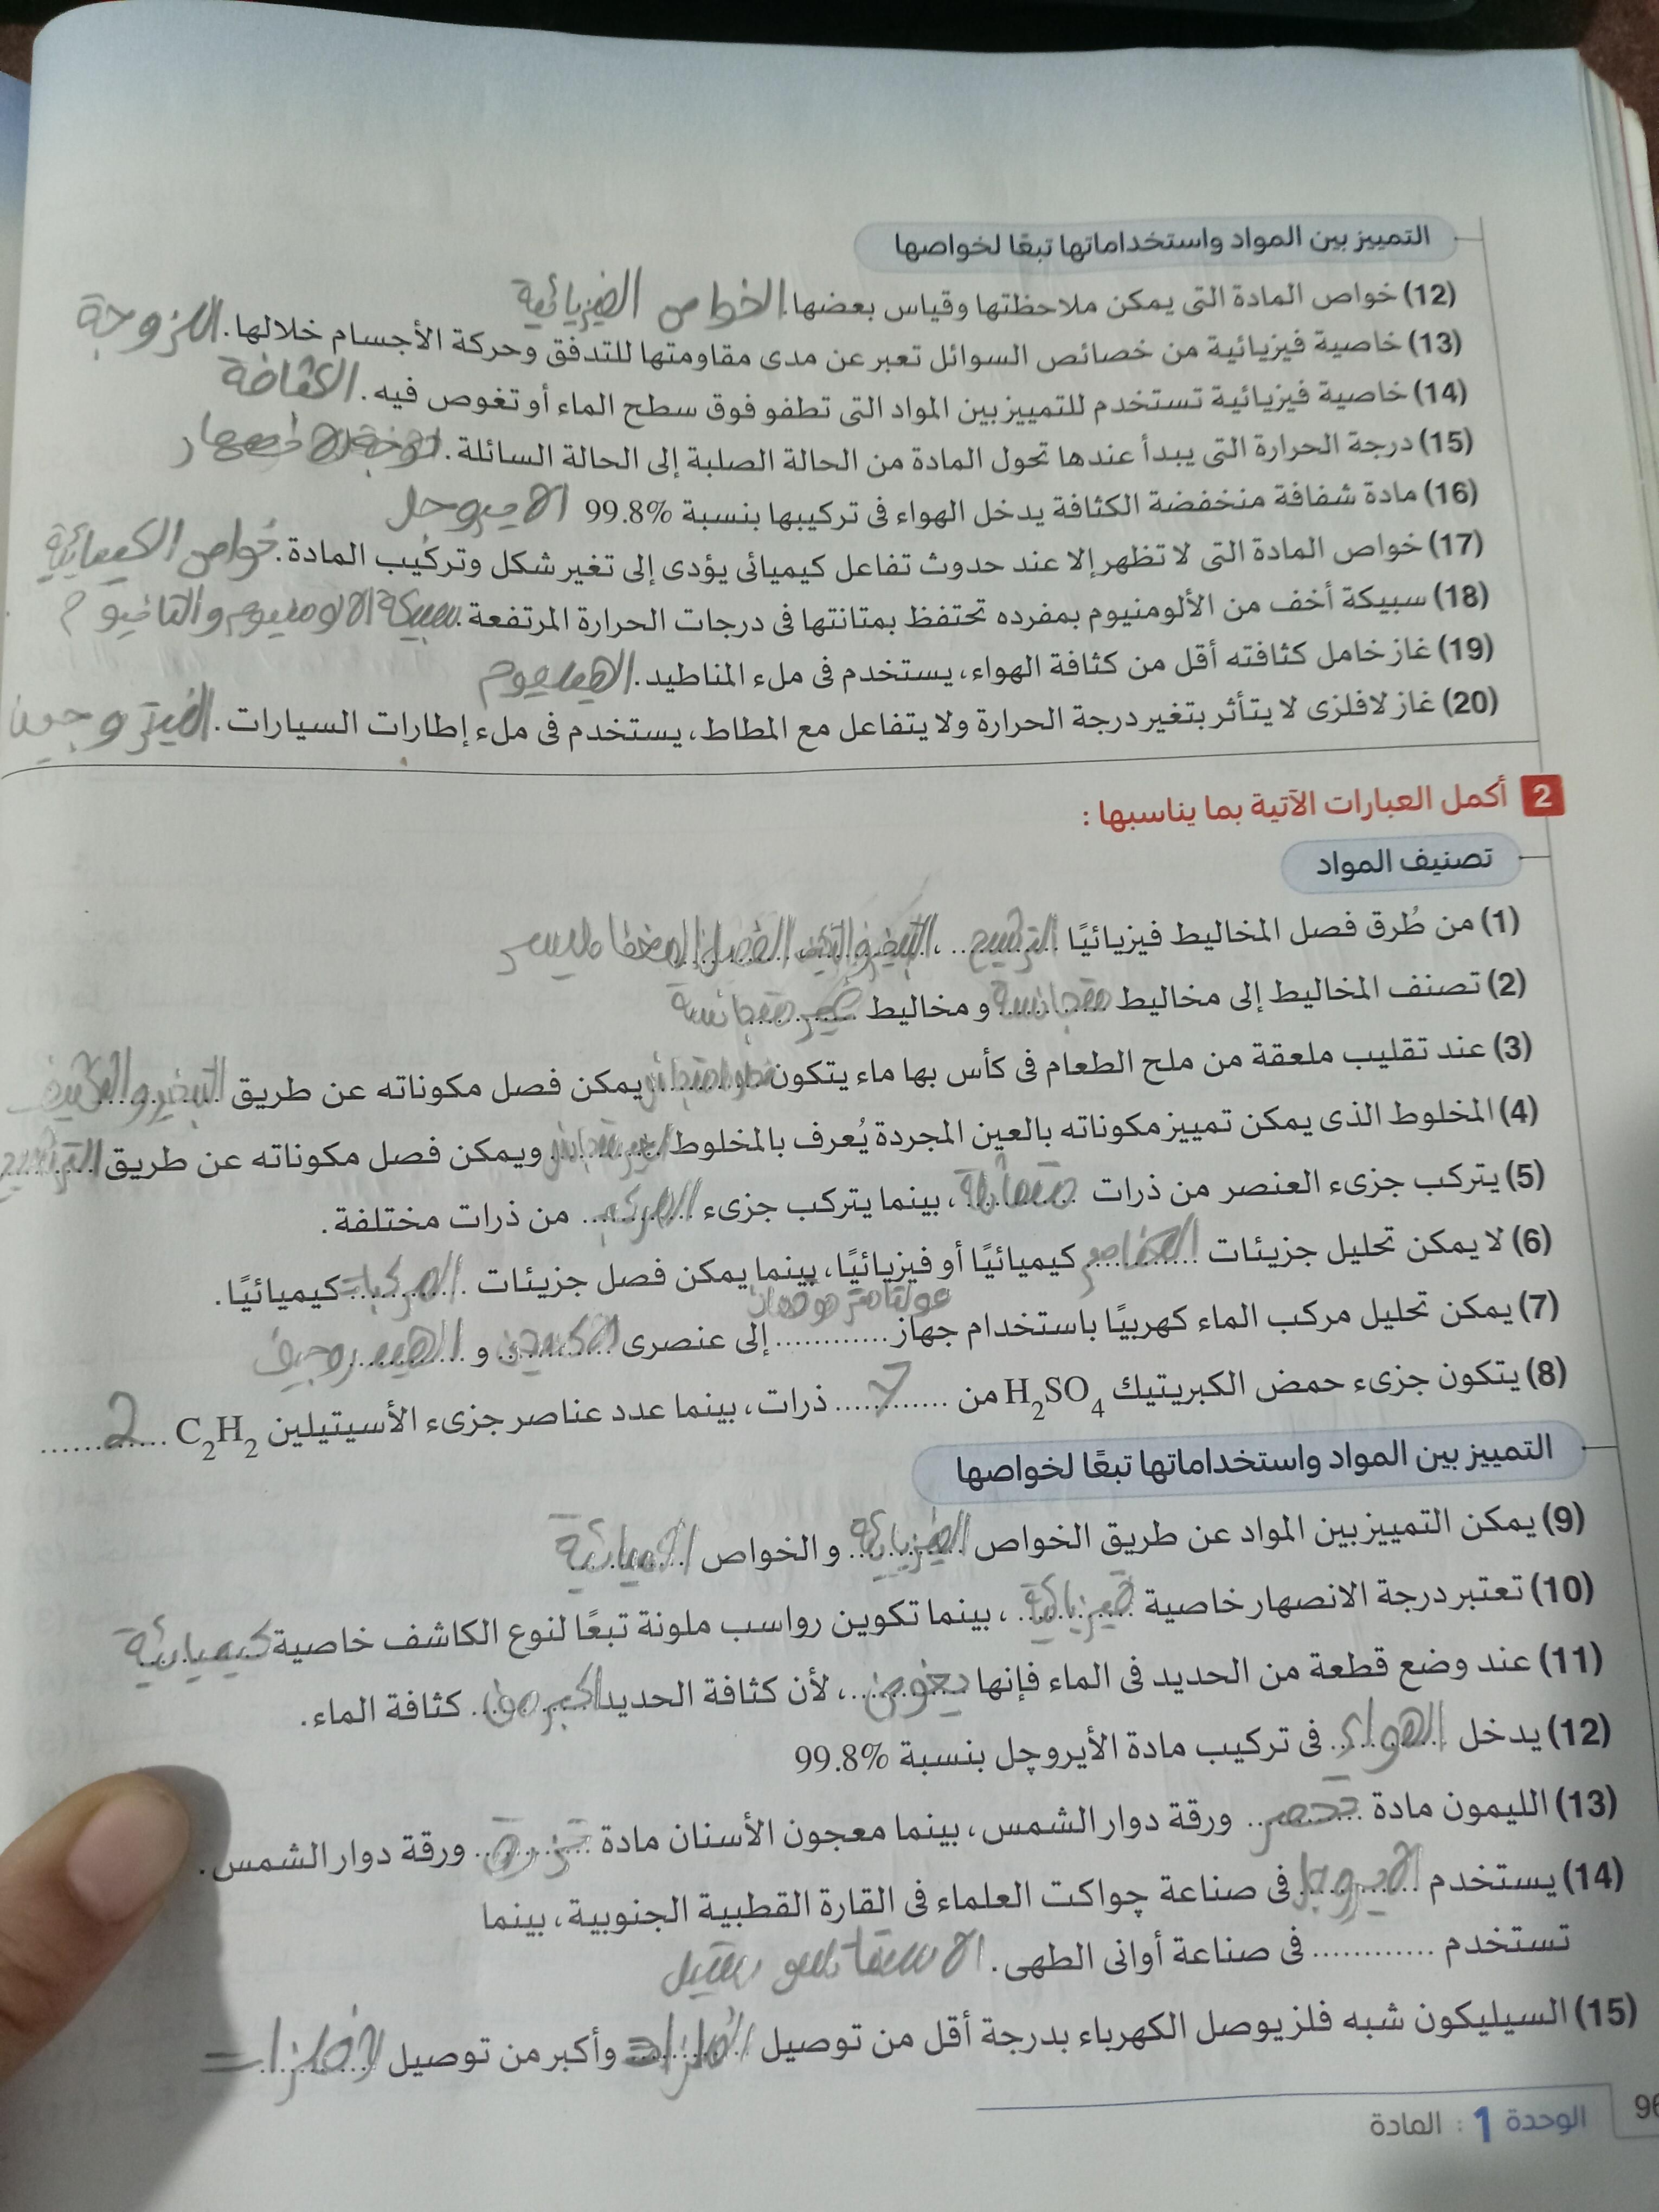 التمييز بين المواد واستخداماتها تبعًا لخواصها
(12) خواص المادة التى يمكن ملاحظتها وقياس بعضها. الخواص الفيزيائية
(13) خاصية فيزيائية من خصائص السوائل تعبر عن مدى مقاومتها للتدفق وحركة الأجسام خلالها. اللزوجة
(14) خاصية فيزيائية تستخدم للتمييز بين المواد التى تطفو فوق سطح الماء أو تغوص فيه. الكثافة
(15) درجة الحرارة التى يبدأ عندها تحول المادة من الحالة الصلبة إلى الحالة السائلة.
(16) مادة شفافة منخفضة الكثافة يدخل الهواء فى تركيبها بنسبة 99.8% الايروجل
(17) خواص المادة التى لا تظهر إلا عند حدوث تفاعل كيميائى يؤدى إلى تغير شكل وتركيب المادة. خواص الكيميائية
(18) سبيكة أخف من الألومنيوم بمفرده تحتفظ بمتانتها فى درجات الحرارة المرتفعة. سبيكة الالومنيوم والتانيوم
(19) غاز خامل كثافته أقل من كثافة الهواء، يستخدم فى ملء المناطيد. الهيليوم
(20) غاز لافلزى لا يتأثر بتغير درجة الحرارة ولا يتفاعل مع المطاط، يستخدم فى ملء إطارات السيارات. النيتروجين
2 أكمل العبارات الآتية بما يناسبها :
تصنيف المواد
(1) من طُرق فصل المخاليط فيزيائيًا الترشيح ، التبخير والتكثيف، الفصل المغناطيسى
(2) تصنف المخاليط إلى مخاليط متجانسة و مخاليط غير متجانسة
(3) عند تقليب ملعقة من ملح الطعام فى كأس بها ماء يتكون يمكن فصل مكوناته عن طريق التبخير والتكثيف
(4) المخلوط الذى يمكن تمييز مكوناته بالعين المجردة يُعرف بالمخلوط ويمكن فصل مكوناته عن طريق الترشيح
(5) يتركب جزىء العنصر من ذرات متماثلة ، بينما يتركب جزىء المركب من ذرات مختلفة.
(6) لا يمكن تحليل جزيئات العناصر كيميائيًا أو فيزيائيًا، بينما يمكن فصل جزيئات المركبات كيميائيًا.
(7) يمكن تحليل مركب الماء كهربيًا باستخدام جهاز فولتامتر هوفمان إلى عنصرى الاكسجين و الهيدروجين
(8) يتكون جزىء حمض الكبريتيك H2SO4 من 7 ذرات، بينما عدد عناصر جزىء الأسيتيلين C2H2 2
التمييز بين المواد واستخداماتها تبعًا لخواصها
(9) يمكن التمييز بين المواد عن طريق الخواص الفيزيائية و الخواص
(10) تعتبر درجة الانصهار خاصية فيزيائية ، بينما تكوين رواسب ملونة تبعًا لنوع الكاشف خاصية كيميائية
(11) عند وضع قطعة من الحديد فى الماء فإنها تغوص ، لأن كثافة الحديد اكبر من كثافة الماء.
(12) يدخل الهواء فى تركيب مادة الأيروچل بنسبة 99.8%
(13) الليمون مادة تحمر ورقة دوار الشمس، بينما معجون الأسنان مادة تزرق ورقة دوار الشمس.
(14) يستخدم الايروجل فى صناعة چواكت العلماء فى القارة القطبية الجنوبية، بينما
تستخدم ............ فى صناعة أوانى الطهى. الاستانلس ستيل
(15) السيليكون شبه فلز يوصل الكهرباء بدرجة أقل من توصيل الفلزات وأكبر من توصيل لافلزات
96 الوحدة 1 : المادة